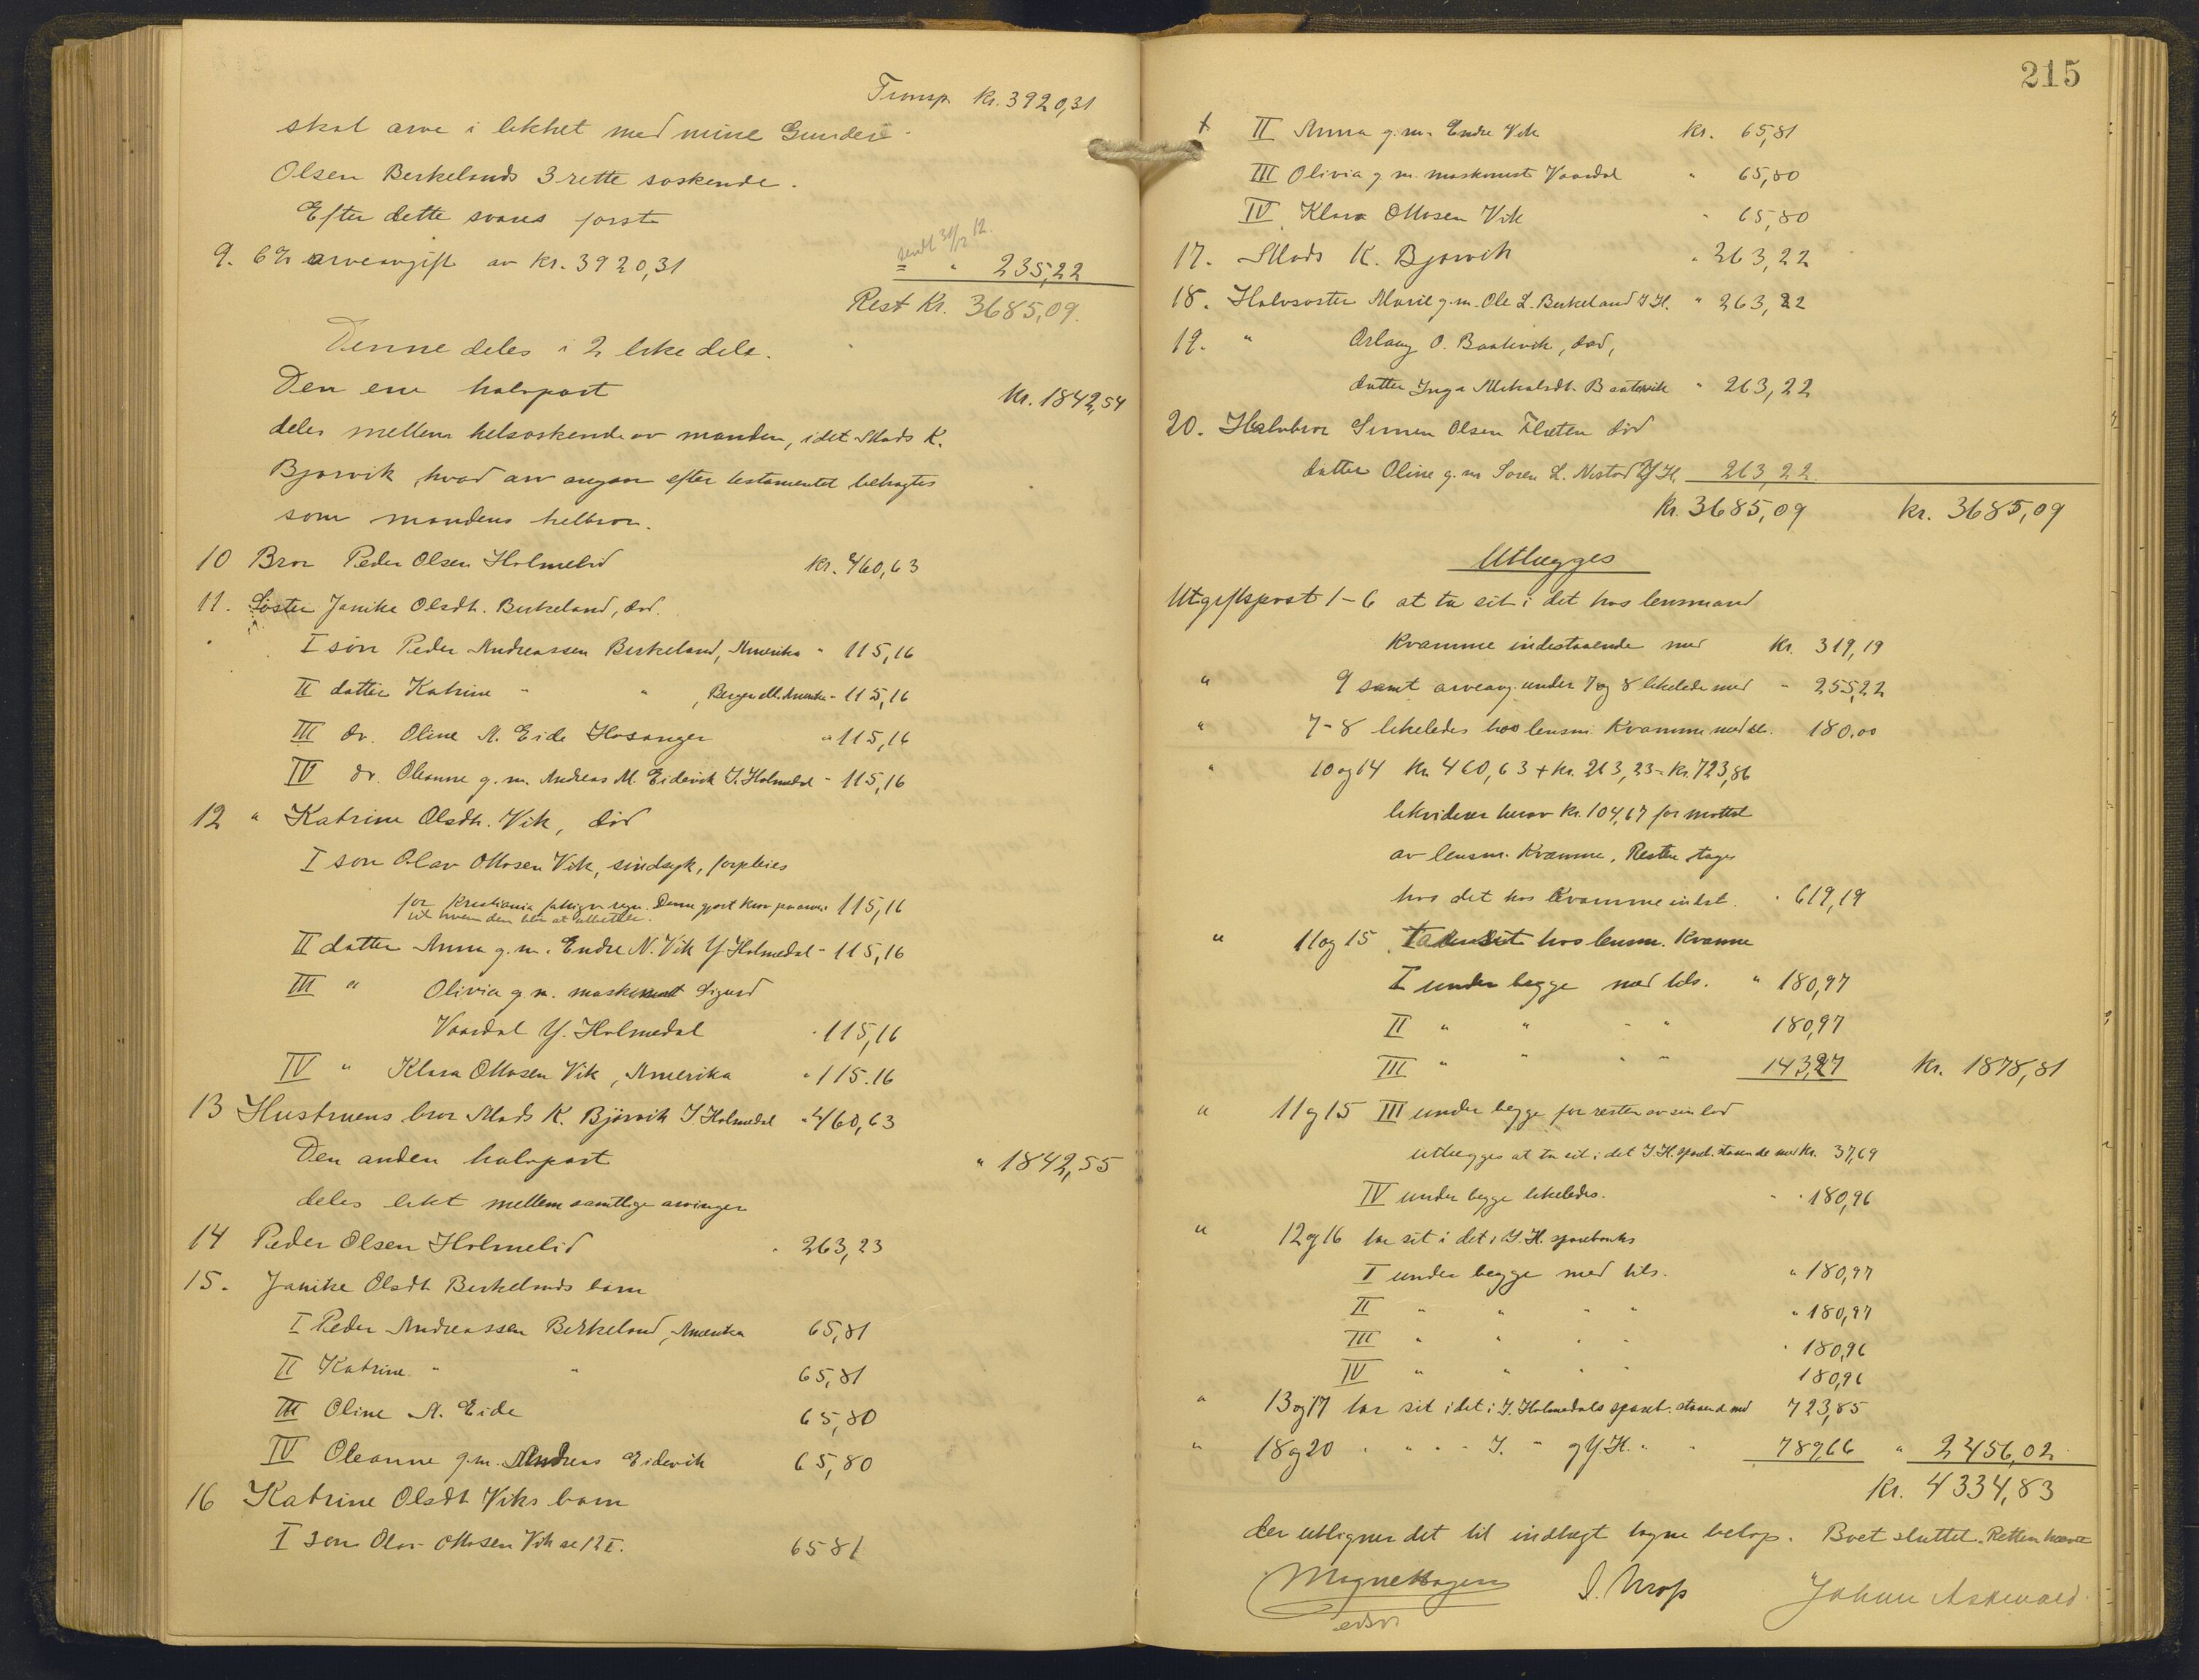 Transp. Kr. 3920,31
skal arve i likhet med mine Gunder
Olsen Berkelands 3 rette søskende.
Efter dette svares først
sendt 31/12 12.
9. 6% arveavgift av Kr. 3920,31 " 235,22
Rest Kr. 3685,09.
Denne deles i 2 like dele.
Den ene halvpart Kr. 1842,54
deles mellem helsøskende av manden, idet Mads K.
Bjørvik, hvad arv angaar efter testamentet betragtes
som mandens helbror.
10 Bror Peder Olsen Holmelid Kr. 460,63
11. Søster Janike Olsdt. Berkeland, død.
I søn Peder Andreassen Berkeland, Amerika " 115,16
II datter Katrine " " , Bergen ell. Amerika " 115,16
III do. Oline A. Eide Hosanger " 115,16
IV do. Oleanne g.m. Andreas M. Eidevik I. Holmedal " 115,16
12 " Katrine Olsdt. Vik, død
I søn Olav Ottosen Vik, sindsyk, forpleies
for Kristiania fattigv. regn. Denne post 115,16
til hvem den blir at utbetale.
II datter Anna g.m. Endre N. Vik Y. Holmedal " 115,16
III " Olivia g.m. maskinist Sigurd
Vaardal Y. Holmedal " 115,16
IV " Klara Ottosen Vik, Amerika " 115.16
13 Hustruens bror Mads K. Bjørvik I. Holmedal " 460,63
Den anden halvpart " 1842,55
deles likt mellem samtlige arvinger
14 Peder Olsen Holmelid " 263,23
15. Janike Olsdt Berkelands barn
I Peder Andreassen Berkeland, Amerika 65,81
II Katrine " " 65,81
III Oline A. Eide 65,80
IV Oleanne g.m. Andreas Eidevik 65,80
16 Katrine Olsdt Viks barn
I søn Olav Ottosen Vik se 12 I. 65 81
215
II Anna g.m. Endre Vik Kr. 65,81
III Olivia g.m. maskinist Vaardal " 65,80
IV Klara Ottosen Vik " 65,80
17. Mads K. Bjørvik " 263,22
18. Halvsøster Marie g.m. Ole L. Berkeland I.H. " 263,22
19. " Arlaug O. Baatevik, død,
datter Inga Mikalsdt. Baatevik " 263,22
20. Halvbror Simen Olsen Flaten død
datter Oline g.m. Søren L. Nistad Y.H. 263,22.
Kr. 3685,09 Kr. 3685,09
Utlægges
Utgiftspost 1-6 at ta sit i det hos lensmand
Kvamme indestaaende med Kr. 319,19
" 9 samt arveavg. under 7 og 8 likeledes med " 255,22
" 7-8 likeledes hos lensm. Kvamme med tils. 180.00
" 10 og 14 Kr. 460,63 + Kr. 263,23 = Kr. 723,86
likviderer herav Kr. 104,67 for mottat
av lensm. Kvamme. Resten tages
hos det hos Kvamme indest. " 619,19
" 11 og 15 Ta sit hos lensm. Kvamme
I under begge med tils. " 180,97
II " " " " 180,97
III " " " " 143,27 Kr. 1878,81
" 11 og 15 III under begge for resten av sin lod
utlægges at ta sit i det I.H. spareb. staaende med Kr. 37,69
IV under begge likeledes. " " 180,96
" 12 og 16 tar sit i det i Y.H. sparebank
I under begge med tils. " 180,97
II " " " " " 180,97
III " " " " " 180,96
IV " " " " 180,96
" 13 og 17 tar sit i det i I. Holmedals spareb. staaende med 723,85
" 18 og 20 " " " " I. " og Y.H. " " 789,66 " 2456,02
Kr. 4334,83
der utligner det til indtægt tagne beløp. Boet sluttet. Retten hævet
Magne Hagen
edsv.
Johan